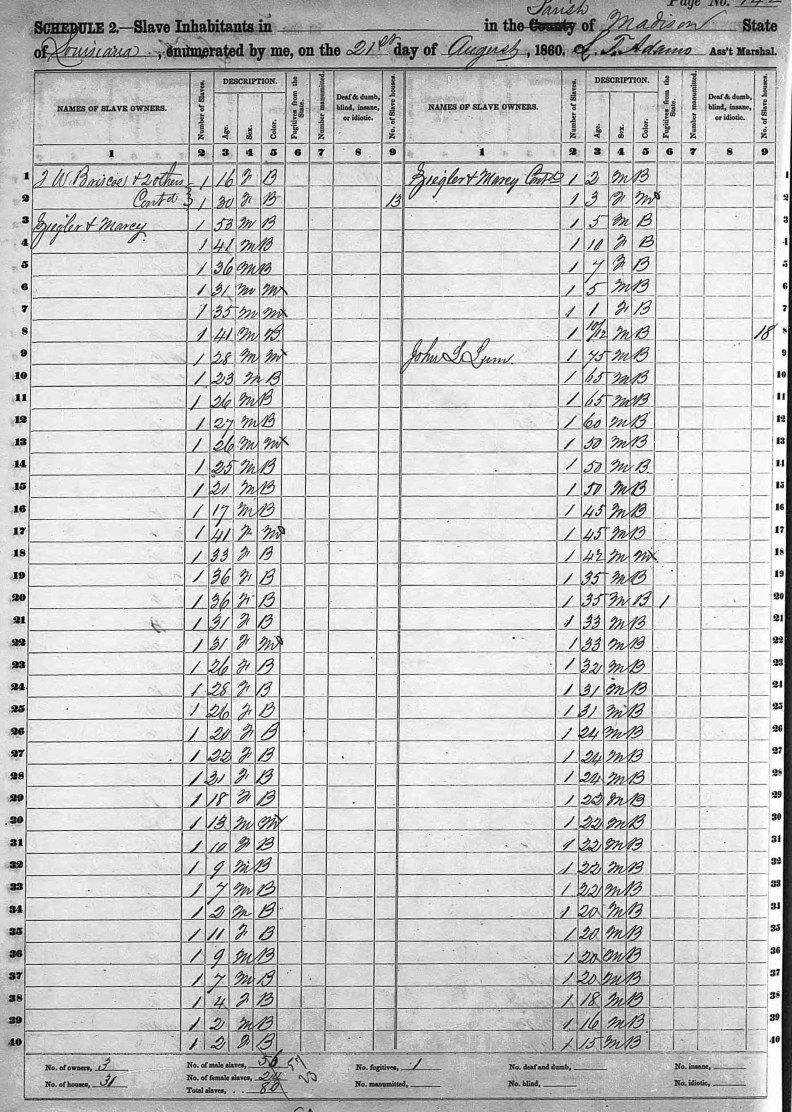 Page No. 142
SCHEDULE 2.—Slave Inhabitants in in the County Parish of Madison State
of Louisiana, enumerated by me, on the 21st day of August, 1860. T. Adams Ass't Marshal.
NAMES OF SLAVE OWNERS. Number of Slaves. DESCRIPTION. Age. Sex. Color. Fugitives from the State. Number manumitted. Deaf & dumb, blind, insane, or idiotic. No. of Slave houses. NAMES OF SLAVE OWNERS. Number of Slaves. DESCRIPTION. Age. Sex. Color. Fugitives from the State. Number manumitted. Deaf & dumb, blind, insane, or idiotic. No. of Slave houses.
1 2 3 4 5 6 7 8 9 1 2 3 4 5 6 7 8 9
1 W Briscoe & 2 others 1 16 F B Ziegler & Marcy Contd 1 2 M B 1
2 Contd 3 1 30 F B 13 1 3 F M 2
3 Ziegler & Marcy 1 53 M B 1 5 M B 3
4 1 41 M B 1 10 F B 4
5 1 36 M B 1 7 F B 5
6 1 31 M M 1 5 M B 6
7 1 35 M M 1 1 F B 7
8 1 41 M B 1 10/12 M B 18 8
9 1 28 M M John Lum 1 75 M B 9
10 1 23 M B 1 65 M B 10
11 1 26 M B 1 65 M B 11
12 1 27 M B 1 60 M B 12
13 1 26 M M 1 50 M B 13
14 1 25 M B 1 50 M B 14
15 1 21 M B 1 50 M B 15
16 1 17 M B 1 45 M B 16
17 1 41 F M 1 45 M B 17
18 1 33 F B 1 42 M M 18
19 1 36 F B 1 35 M B 19
20 1 36 F B 1 35 M B 1 20
21 1 31 F B 1 33 M B 21
22 1 31 F M 1 33 M B 22
23 1 26 F B 1 32 M B 23
24 1 28 F B 1 31 M B 24
25 1 26 F B 1 31 M B 25
26 1 20 F B 1 24 M B 26
27 1 22 F B 1 24 M B 27
28 1 21 F B 1 24 M B 28
29 1 18 F B 1 22 M B 29
30 1 13 M M 1 22 M B 30
31 1 10 F B 1 22 M B 31
32 1 9 M B 1 22 M B 32
33 1 7 M B 1 22 M B 33
34 1 2 M B 1 20 M B 34
35 1 11 F B 1 20 M B 35
36 1 9 M B 1 20 M B 36
37 1 7 M B 1 20 M B 37
38 1 4 F B 1 18 M B 38
39 1 2 M B 1 16 M B 39
40 1 2 F B 1 15 M B 40
No. of owners, 3 No. of male slaves, 56 57 No. fugitives, 1 No. deaf and dumb, No. insane,
No. of houses, 31 No. of female slaves, 24 23 No. manumitted, No. blind, No. idiotic,
Total slaves, . . 80